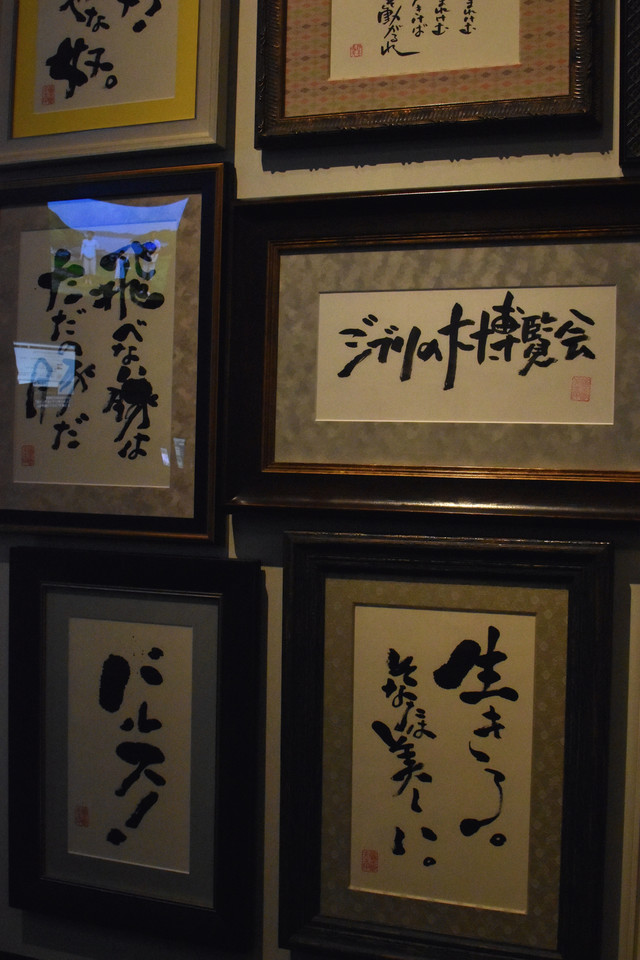 やな奴。
飛べない豚は
ただのブタだ
ジブリの大博覧会
バルス!
生きろ。
そなたは美しい。